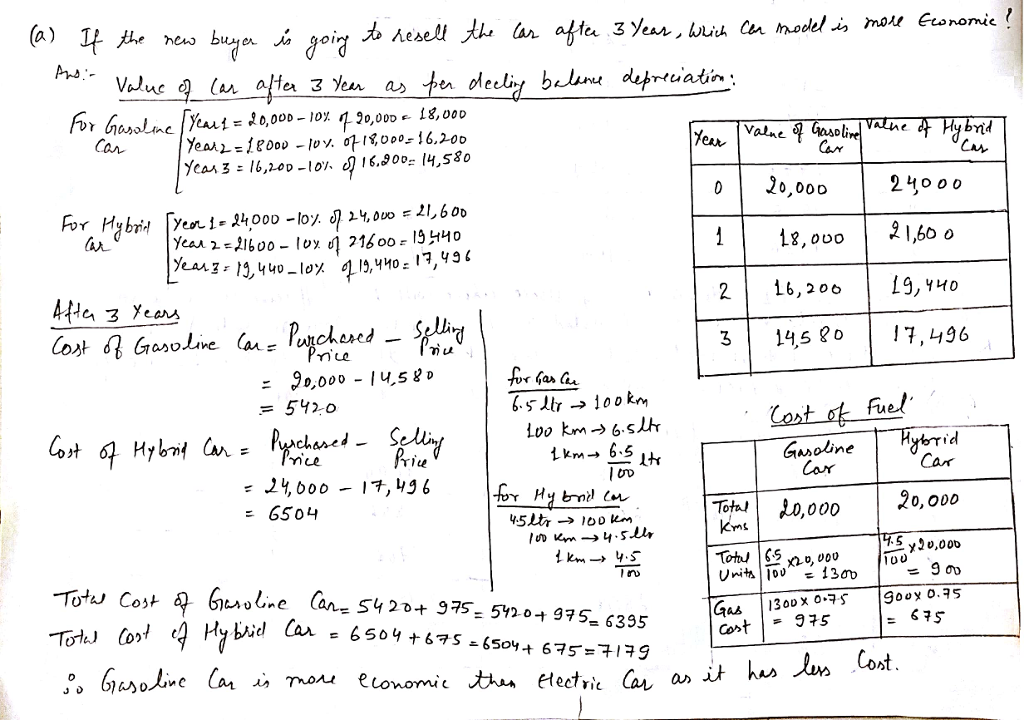 (a) If the new buyer is going to resell the Car after 3 Year, Which Car model is more Economic?
Ans:- Value of Car after 3 Year as per decling balance depreciation:
For Gasoline Car
Year 1 = 20,000 - 10% of 20,000 = 18,000
Year 2 = 18000 - 10% of 18,000 = 16,200
Year 3 = 16,200 - 10% of 16,200 = 14,580
For Hybrid Car
Year 1 = 24,000 - 10% of 24,000 = 21,600
Year 2 = 21600 - 10% of 21600 = 19440
Year 3 = 19,440 - 10% of 19,440 = 17,496
Year | Value of Gasoline Car | Value of Hybrid Car
0 | 20,000 | 24,000
1 | 18,000 | 21,600
2 | 16,200 | 19,440
3 | 14,580 | 17,496
After 3 Years
Cost of Gasoline Car = Purchased Price - Selling Price
= 20,000 - 14,580
= 5420
Cost of Hybrid Car = Purchased Price - Selling Price
= 24,000 - 17,496
= 6504
for Gas Car
6.5 ltr → 100 km
100 km → 6.5 ltr
1 km → 6.5/100 ltr
for Hybrid Car
4.5 ltr → 100 km
100 km → 4.5 ltr
1 km → 4.5/100
Cost of Fuel
Gasoline Car | Hybrid Car
Total Kms | 20,000 | 20,000
Total Units | 6.5/100 x 20,000 = 1300 | 4.5/100 x 20,000 = 900
Gas Cost | 1300 x 0.75 = 975 | 900 x 0.75 = 675
Total Cost of Gasoline Car = 5420 + 975 = 5420 + 975 = 6395
Total Cost of Hybrid Car = 6504 + 675 = 6504 + 675 = 7179
∴ Gasoline Car is more economic then Electric Car as it has less Cost.